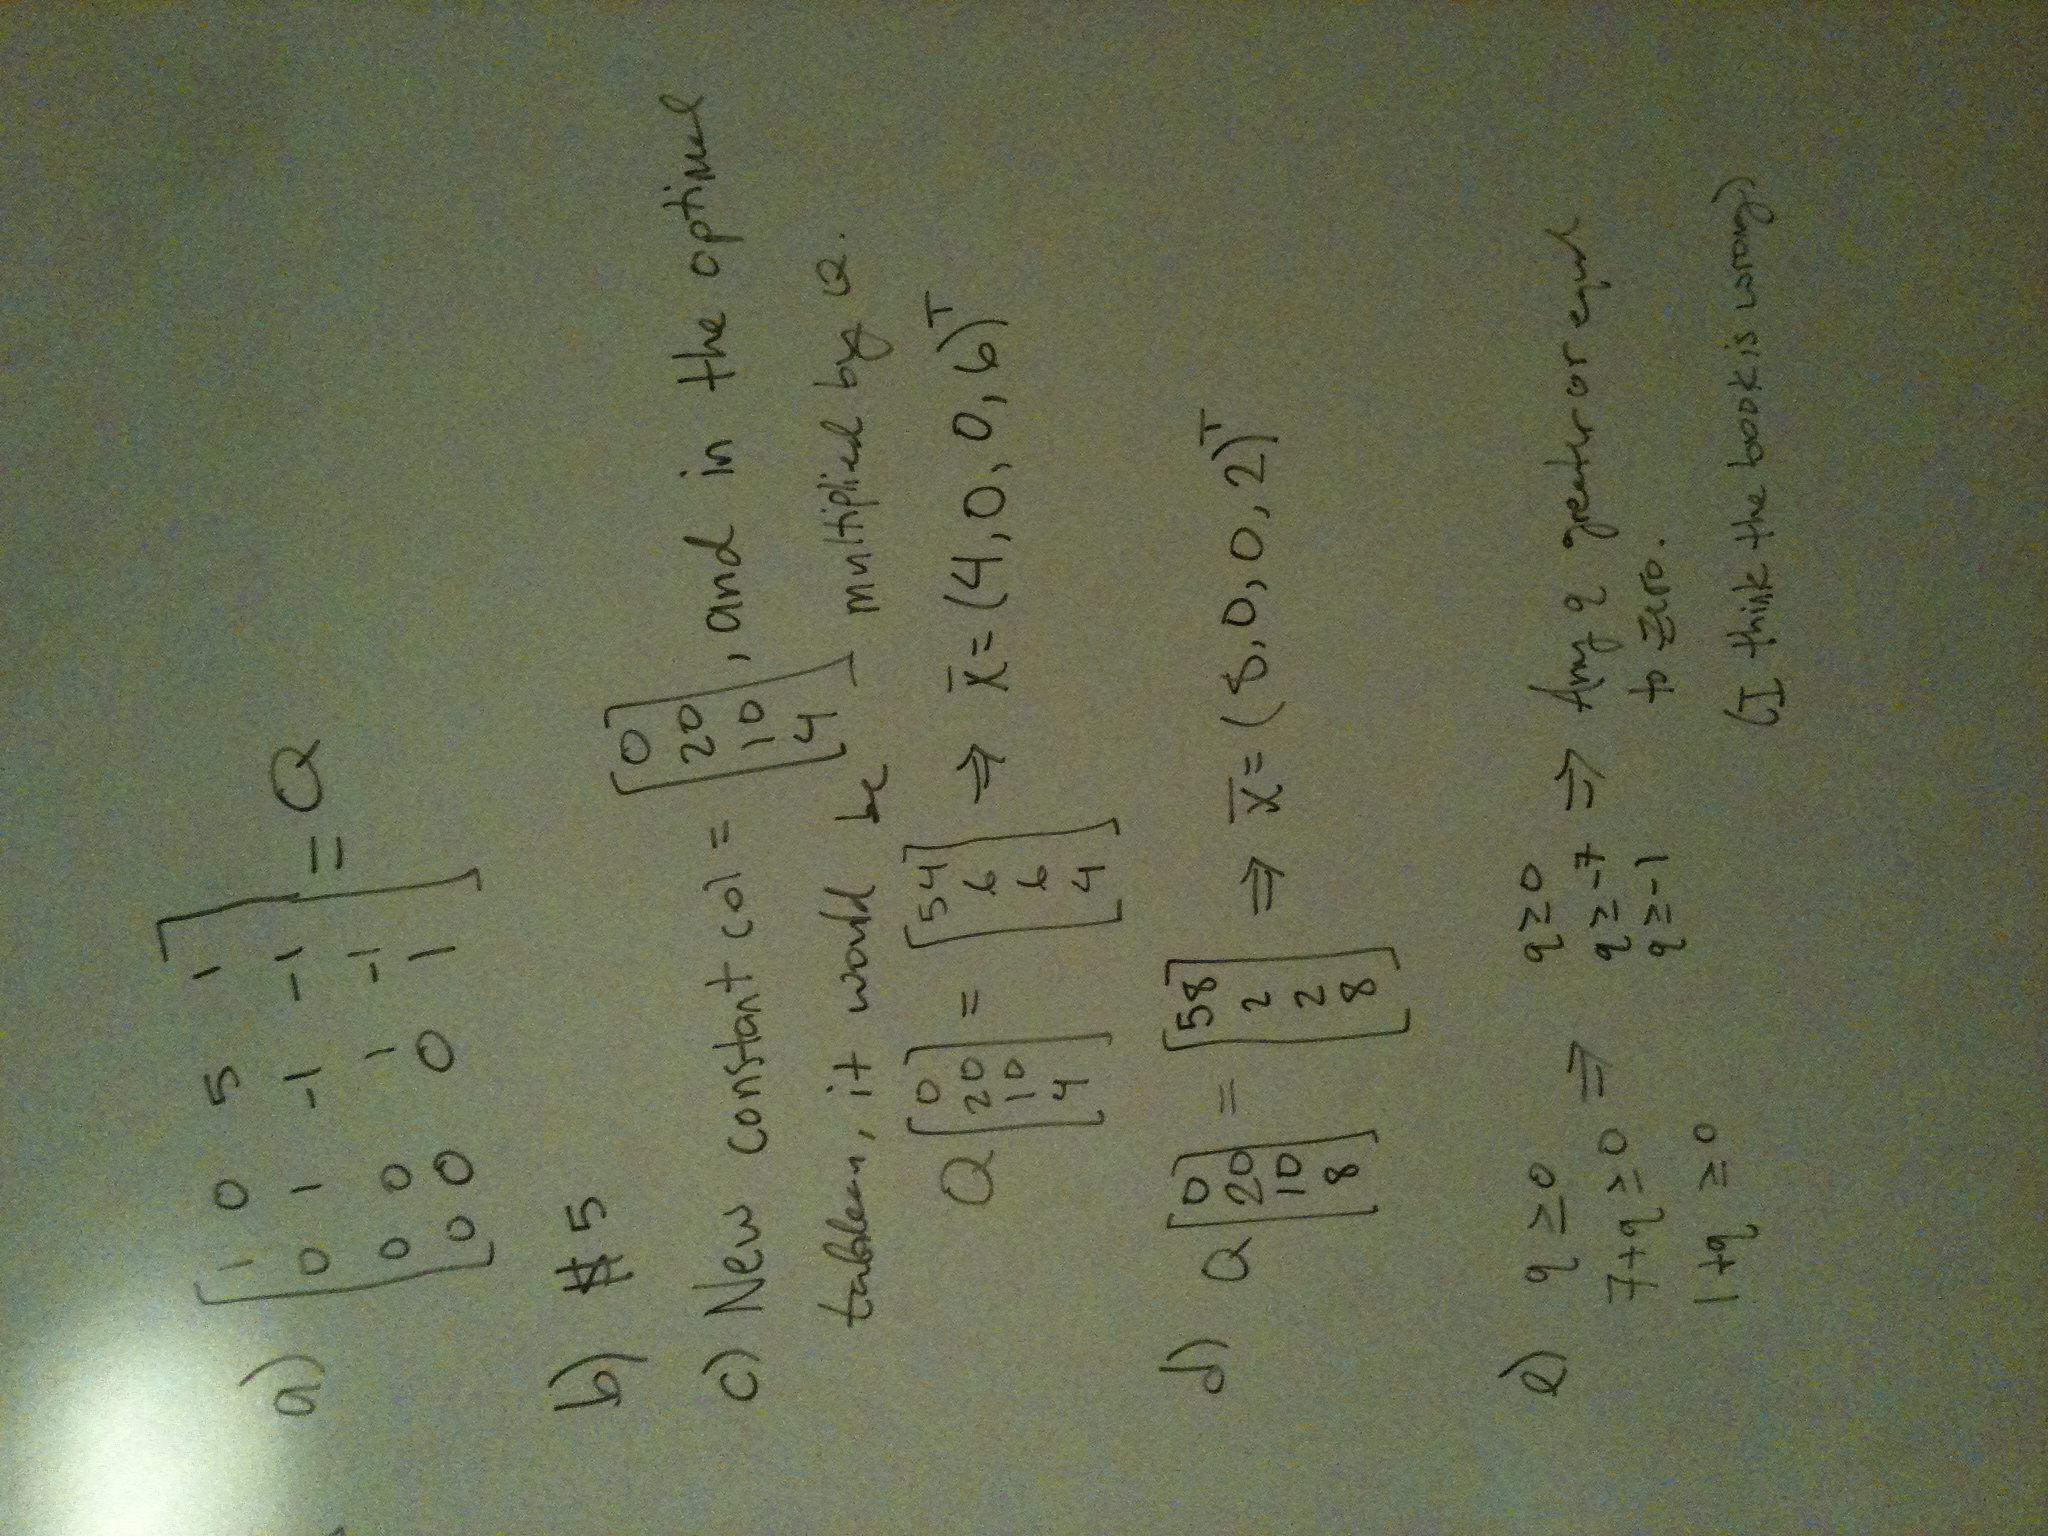 a) [1 0 5 1
0 1 -1 -1
0 0 1 -1
0 0 0 1] = Q
b) $5
c) New constant col = [0 20 10 4], and in the optimal
tableau, it would be multiplied by Q.
Q [0 20 10 4] = [54 6 6 4] ⇒ x̄ = (4, 0, 0, 6)ᵀ
d) Q [0 20 10 8] = [58 2 2 8] ⇒ x̄ = (8, 0, 0, 2)ᵀ
e) q ≥ 0 ⇒ q ≥ 0 ⇒ Any q greater or equal
7+q ≥ 0 q ≥ -7 to zero.
1+q ≥ 0 q ≥ -1
(I think the book is wrong)